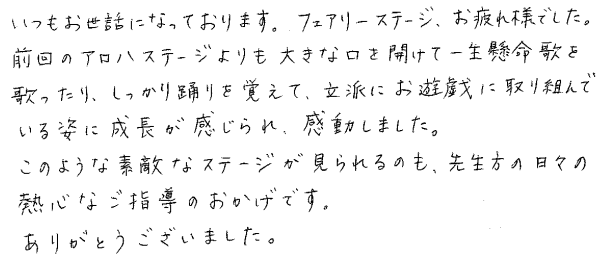 いつもお世話になっております。フェアリーステージ、お疲れ様でした。
前回のアロハステージよりも大きな口を開けて一生懸命歌を
歌ったり、しっかり踊りを覚えて、立派にお遊戯に取り組んで
いる姿に成長が感じられ、感動しました。
このような素敵なステージが見られるのも、先生方の日々の
熱心なご指導のおかげです。
ありがとうございました。